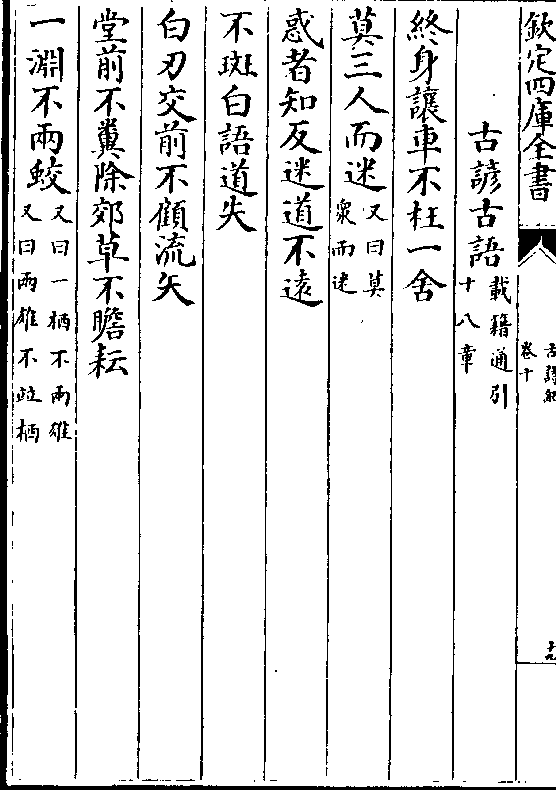 欽定四庫全書
卷十
古諺古語載籍通引十八章
終身讓車不枉一舍
莫三人而迷又曰莫衆而迷
惑者知反迷道不遠
不斑白語道失
白刃交前不顧流矢
堂前不糞除郊草不瞻耘
一淵不兩蛟又曰一栖不兩雄又曰兩雄不竝栖